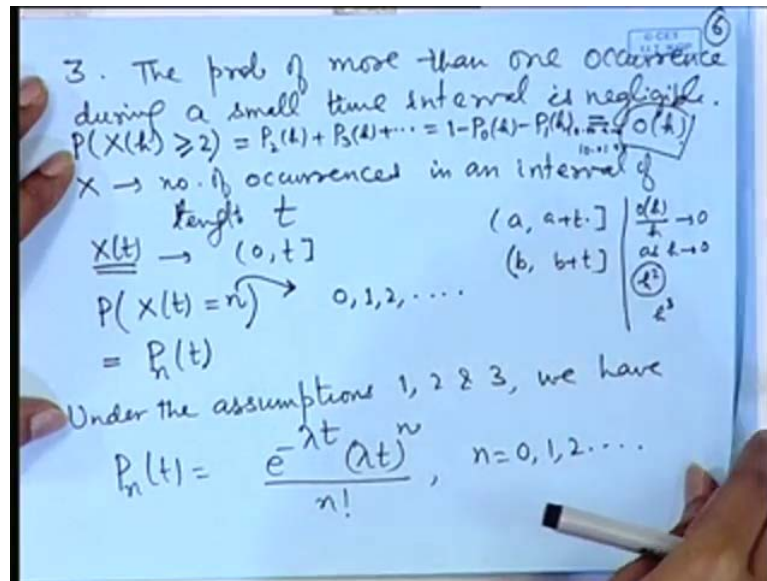 6
3. The prob of more than one occurrence
during a small time interval is negligible.
P(X(h) ≥ 2) = P₂(h) + P₃(h) + ··· = 1 - P₀(h) - P₁(h) = o(h)
X → no. of occurrences in an interval of
length t
(a, a+t.] | o(h)/h → 0
X(t) → (0, t]
(b, b+t] | as h → 0
P(X(t) = n) → 0, 1, 2, ····
h²
h³
= Pₙ(t)
Under the assumptions 1, 2 & 3, we have
Pₙ(t) = e^{-λt} (λt)ⁿ / n! , n = 0, 1, 2 ····